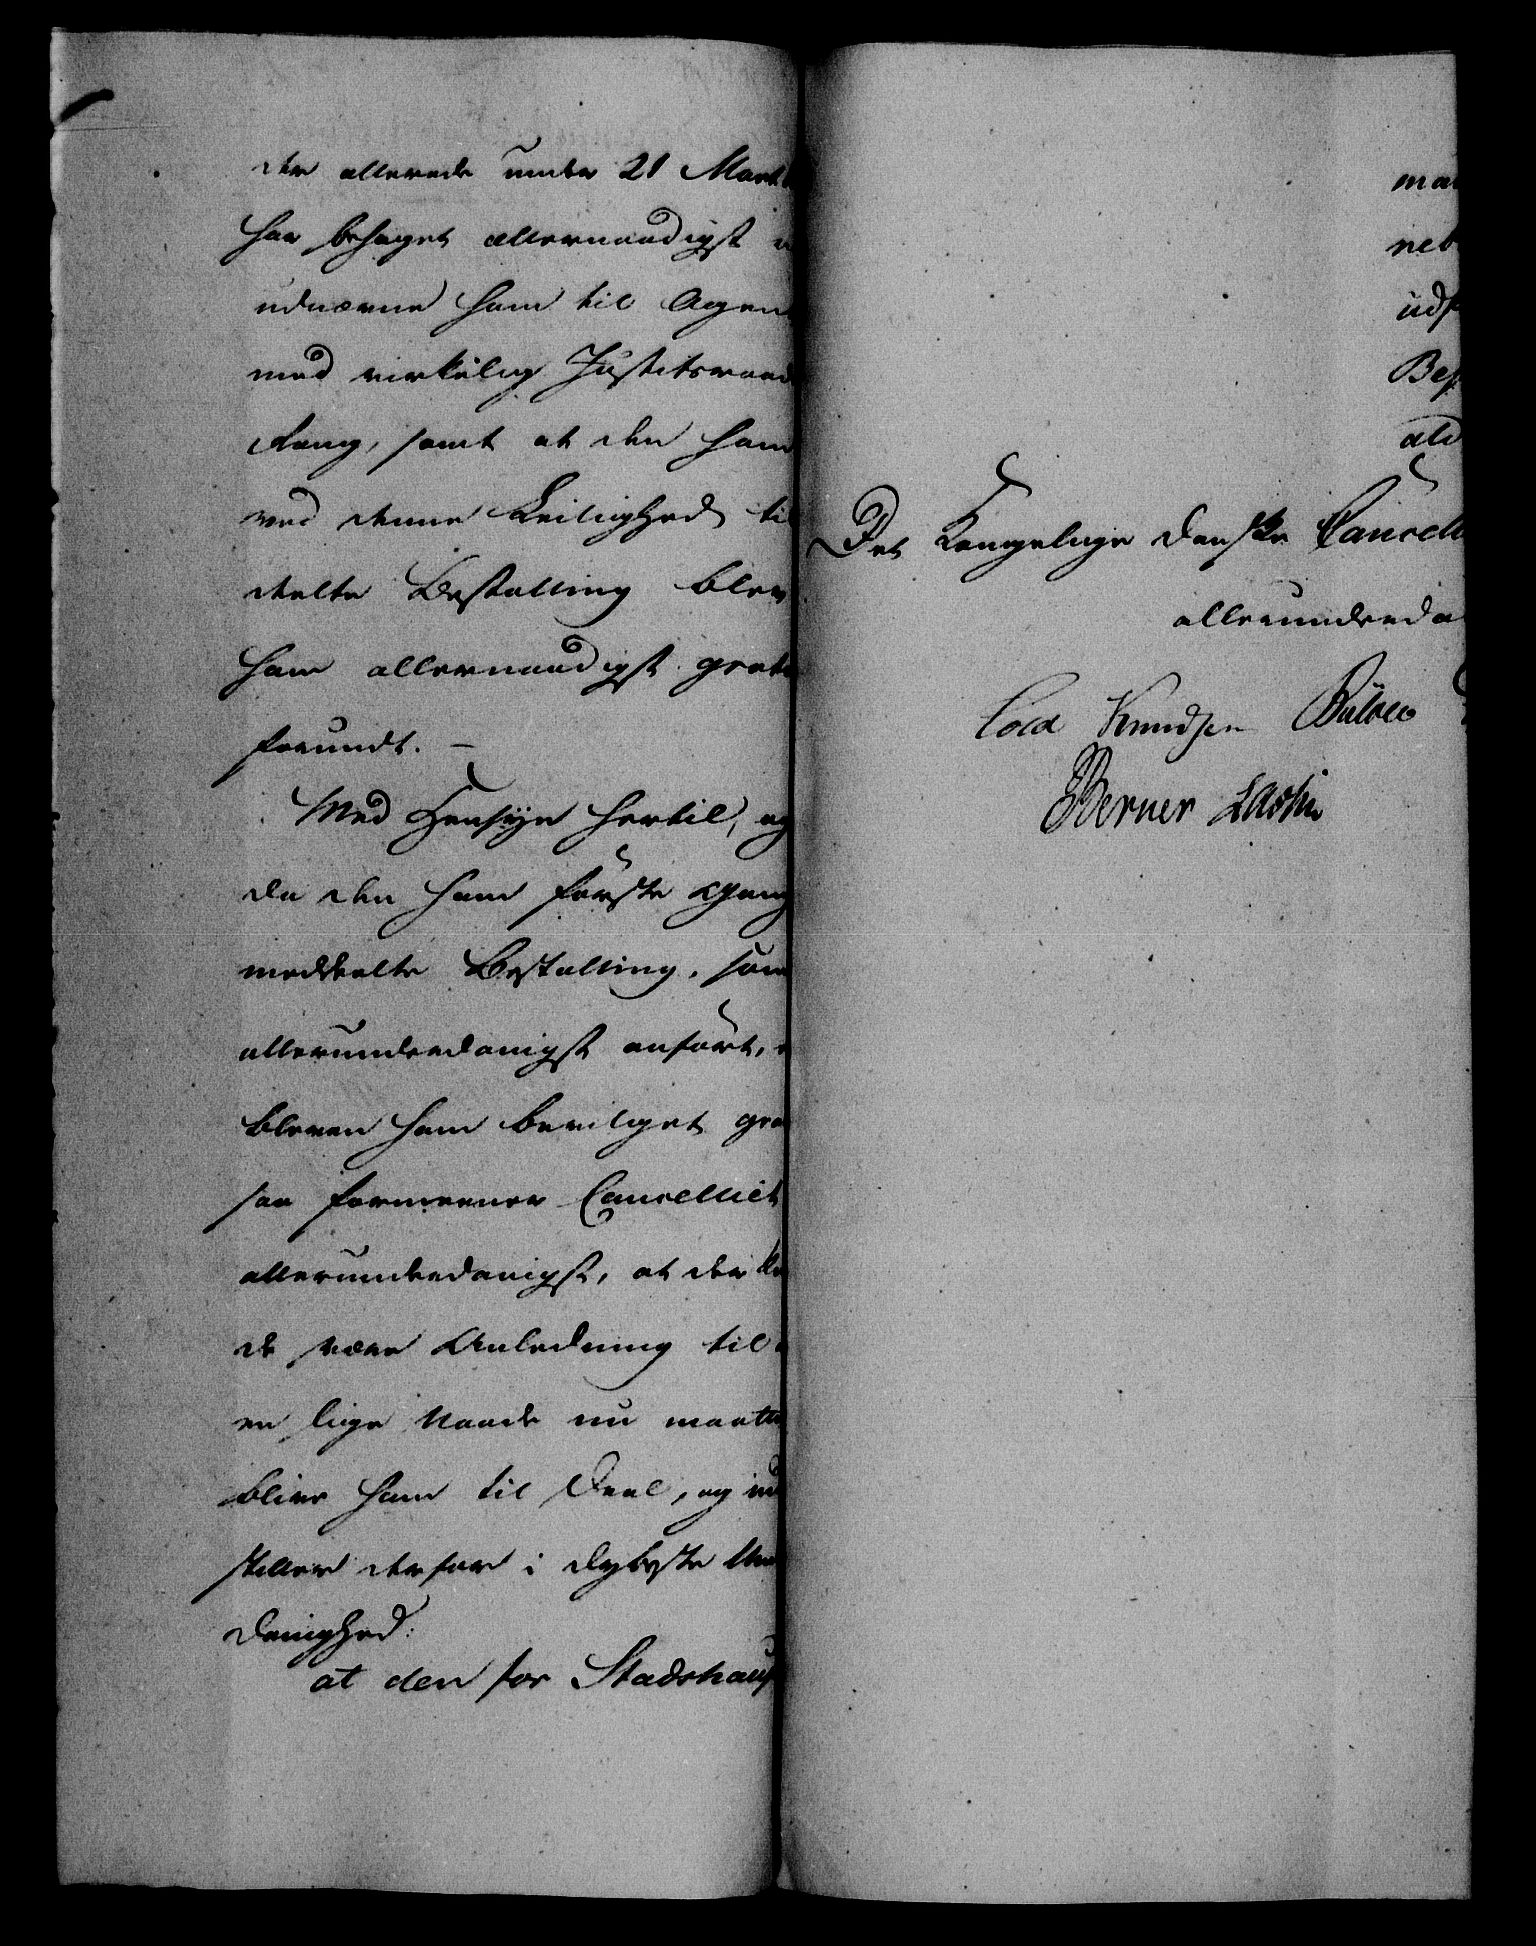 der allerede under 21 Mart
har behaget allernaadigst
udnævne ham til Agent
med virkelig Justitsraads
Rang, samt at den ham
ved denne Leilighed til
deelte Bestalling blev
ham allernaadigst gratis
forundt. –
Med Hensyn hertil, og
da den ham første Gang
meddeelte Bestalling, som
allerunderdanigst anført,
bleven ham bevilget gra
saa formeener Cancelliet
allerunderdanigst, at der kun
de være Anledning til
en lige Naade nu maatte
blive ham til Deel, og ind
stiller derfor i dybeste Un
danighed:
at den for Stadshaup
ma
neb
udf
Bes
ald
Det Kongelige danske Cancelli
allerunderda
Cold Knudsen Bülow
Berner Lassen